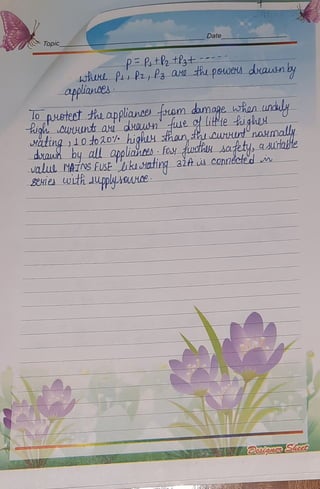 Topic
Date
P = P1 + P2 + P3 + ------
where P1, P2, P3 are the powers drawn by
appliances.
To protect the appliances from damage when unduly
high currents are drawn fuse of little higher
rating, 10 to 20% higher than the current normally
drawn by all appliances. For further safety, a suitable
value MAINS FUSE like rating 32A is connected in
series with supply source.
Designer Sheet